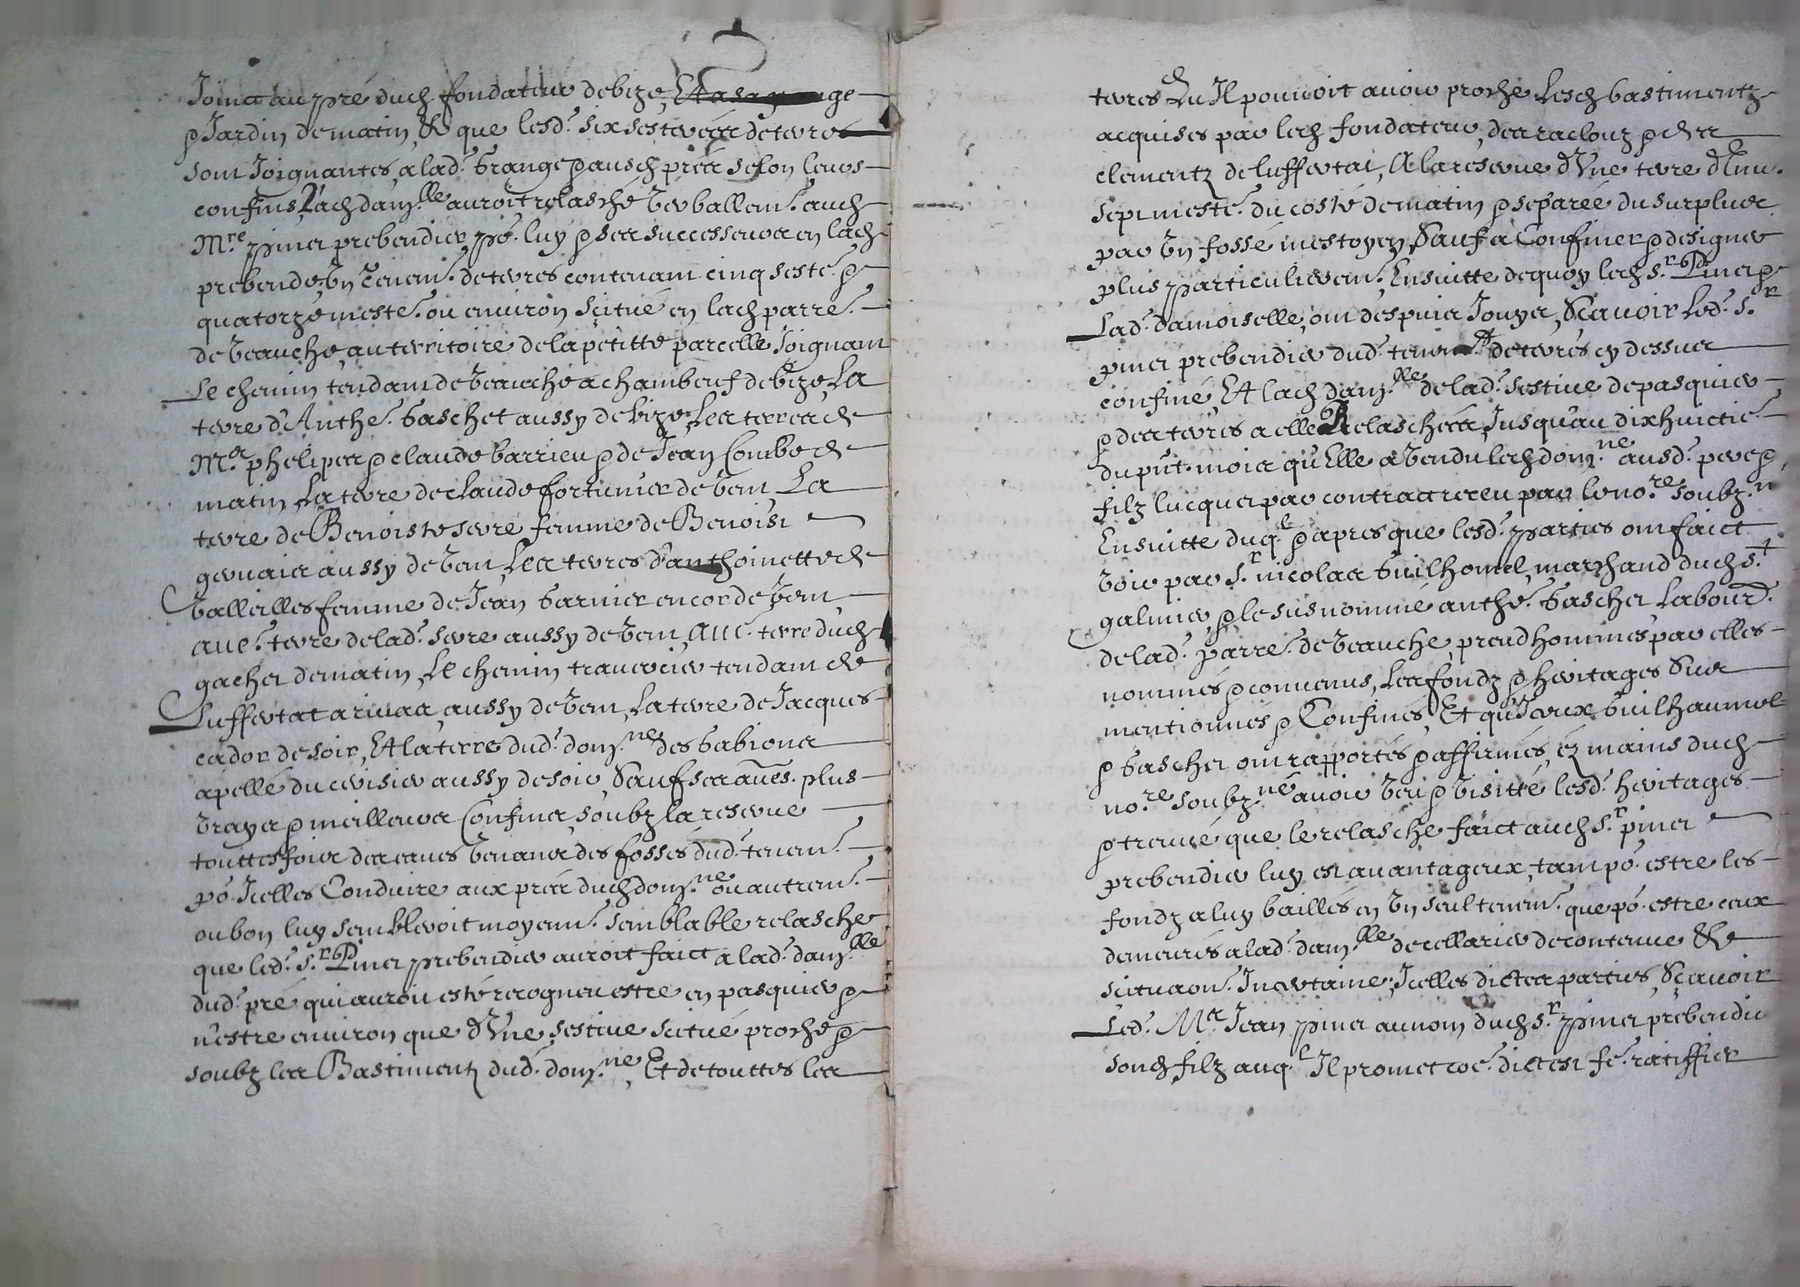 Joinct au pré dud. fondateur de bize, Et a sa grange
& Jardin de matin, & que lesd. six sesterées de terres
sont Joignantes, a lad. grange & ausd. prés selon leurs
confins, Lad. dam.lle auroit relasché verballem.t aud.
M.re piner prebendier, po.r luy & ses successeurs en lad.
prebende, un tenem.t de terres contenant cinq seste.s &
quatorze meste.s ou environ scitué en lad. parre.
de veauche, au territoire de la petitte parcelle Joignant
Le chemin tendant de veauche a chambeuf de bize, La
terre d'Anthe. gaschet aussy de bize, Les terres de
M.es phelipes & claude barrieu & de Jean Combe de
matin, La terre de claude fortunier de vent, La
terre de Benoiste serre femme de Benoist
gervais aussy de vent, Les terres d'anthoinette de
valleilles femme de Jean garnier encor de vent,
aue. terre de lad. serre aussy de vent, aue. terre dud.
gachet de matin, Le chemin traversier tendant de
Luffertat a rivas, aussy de vent, La terre de Jacques
cador de soir, Et la terre dud. dom.ne des babiones
apellé du cerisier aussy de soir, Sauf ses aues. plus
vrayes & meilleures Confines, soubz la reserve
touttesfois des eaues venanes des fossés dud. tenem.t
po.r Icelles Conduire aux prés dud. dom.ne ou autrem.t
ou bon luy sembleroit moyenn.t semblable relasche
que led. S.r Piner prebendier auroit faict a lad. dam.lle
dud. pré qui auroit esté recogneu estre en pasquier &
n'estre environ que d'Une sestive scitué proche &
soubz les Bastimentz dud. dom.ne, Et de touttes les
terres qu Il pouvoit avoir proche Lesd. bastimentz
acquises par led. fondateur, des raclouz & des
clementz de luffertat, A la reserve d'Une terre d'Env.
sept meste. du costé de matin & separée du surplus
par un fossé mestoyen, Sauf a Confiner & designer
plus particulierem.t, Ensuitte de quoy led. S.r Piner &
Lad. damoiselle, ont despuis Jouys, Scavoir Led. S.r
piner prebendier dud. tenem.t de terres cy dessus
confiné, Et lad. dam.lle de lad. sestive de pasquier
& des terres a elle Relaschées, Jusqu'au dixhuictie.
du put. mois qu'Elle a vendu led. dom.ne ausd. pere &
filz lucquet par contract receu par le no.re soubz.né
Ensuitte duq.l & apres que lesd. parties ont faict
voir par S.r nicolas guilhomel, marchand dud. S.t
galmier, & le susnommé anthe. gaschet Labour.
de lad. parre. de veauche, preud hommes par elles
nommés & convenus, Les fondz & heritages Sus
mentionnés & Confinés, Et qu'Iceux guilhaumel
& gaschet ont rapportés & affirmés, ez mains dud.
no.re soubz.né avoir veu & visitté lesd. heritages
& treuvé que le relasche faict aud. S.r piner
prebendier luy est avantageux, tant po.r estre les
fondz a luy baillés en un seul tenem.t que po.r estre ceux
demeurés a lad. dam.lle de cellarier de contenue &
scituaon. Incertaine, Icelles dictes parties, Scavoir
Led. M.e Jean piner au nom dud. S.r piner prebendier
sond. filz auq.l Il promet ces. dictes fe. ratiffier